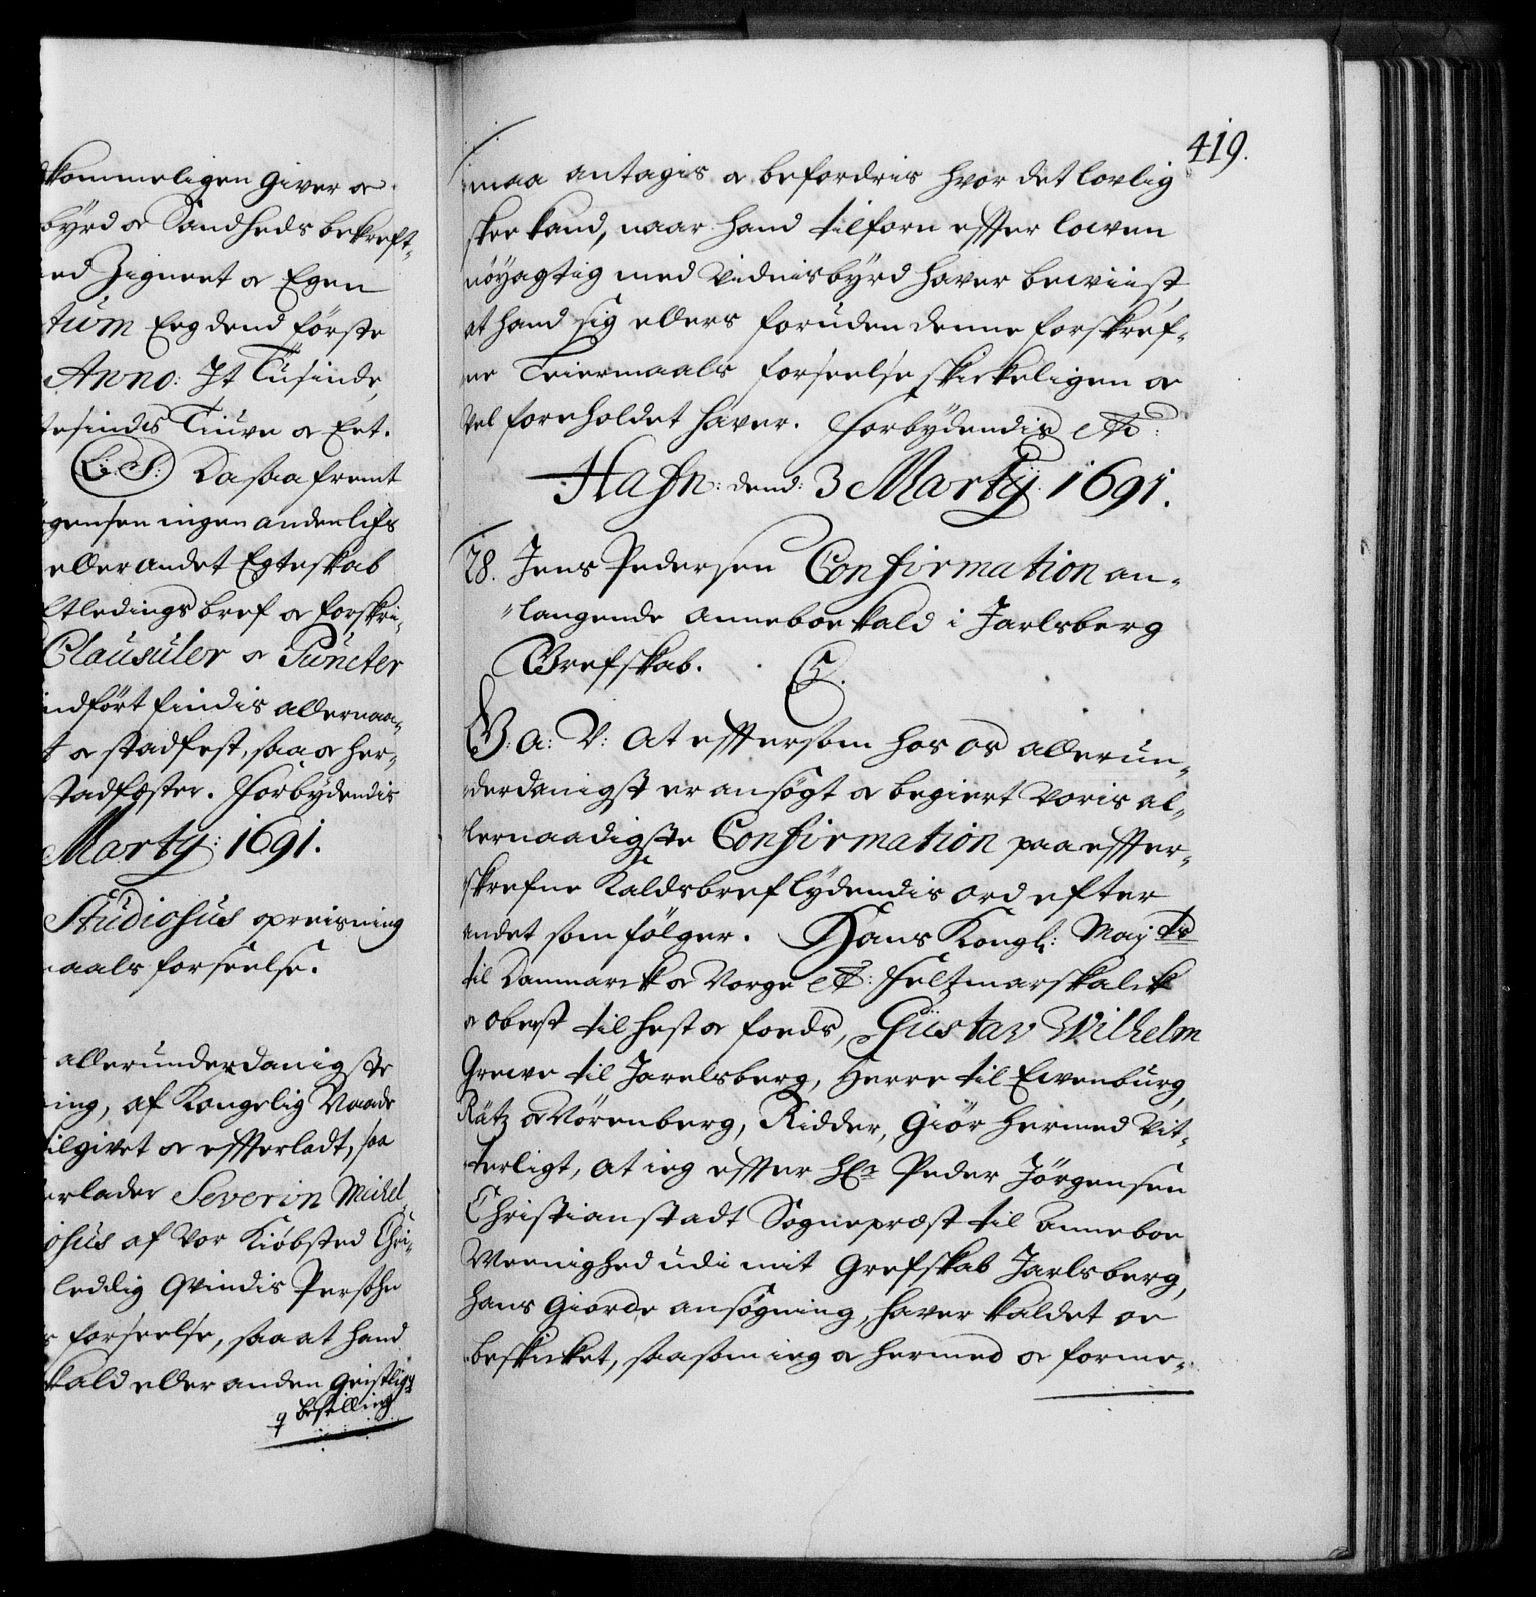 kommeligen Giver oc
byrd oc Sandheds bekreft-
ed Zignet oc Egen
tum Eegdend förste
Anno: It Tüsinde,
tesindis Tiuve oc Eet.
L: S: Da saafremt
gensen ingen anden lifs
eller andet Egteskab
ltledings bref oc forskri-
Clausuler oc Puncter
indfört findis allernaa-
t oc stadfest, saa oc her-
stadfester. Forbydendis
Martij: 1691.
Studiosus opreisning
aals forseelse.
allerunderdanigste
ing, af Kongelig Naade
ilgivet oc effterladt, saa
erlader Severin Michel
osus af vor Kiöbsted Chri-
ledlig Qvindis Persohn
forseelse, saa at hand
kald eller anden Geistlig
bestilling
419.
maa antagis oc befordris hvor det lovlig
skee kand, naar hand tilforn effter lowen
nöyagtig med vidnisbyrd haver bewiist,
at hand sig ellers foruden denne forskref-
ne Leiermaals forseelse skickeligen oc
vel foreholdet haver. Forbydendis etc:
Hafn: dend: 3 Martij: 1691.
78. Jens Pedersen Confirmation an-
langende Anneboe kald i Jarlsberg
Grefskab. C.
G: A: V: At efftersom hos os allerun-
derdanigst er ansögt oc begiert voris al-
lernaadigste Confirmation paa effter-
skrefne Kaldsbref lydendis ord efter
andet som fölger. Hans Kongl: Maj ts
til Danmarck oc Norge etc: Feltmarskalck
oc oberst til hest oc foeds, Güstav Wilhelm
Grewe til Jarelsberg, Herre til Ewenburg,
Rätz oc Nörenberg, Ridder, Giör hermed vit-
terligt, at ieg effter Hr: Peder Jörgensen
Christianstadt Sognepræst til Anneboe
Meenighed udi mit Grefskab Jarlsberg,
hans giorde ansögning, haver kaldet oc
beskicket, saasom ieg oc hermed oc forme-